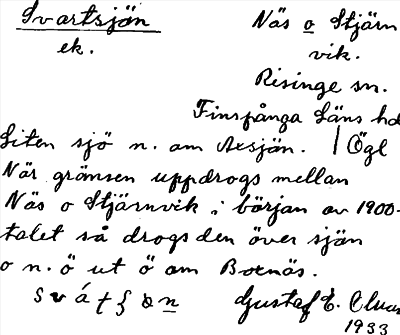 Svartsjön Näs o Stjärn
ek. vik.
Risinge sn.
Finspånga Läns hd
Liten sjö n. om Axsjön. | Ögl
När gränsen uppdrogs mellan
Näs o Stjärnvik i början av 1900-
talet så drogs den över sjön
o n. ö ut ö om Boxnäs.
Gustaf E.
1933